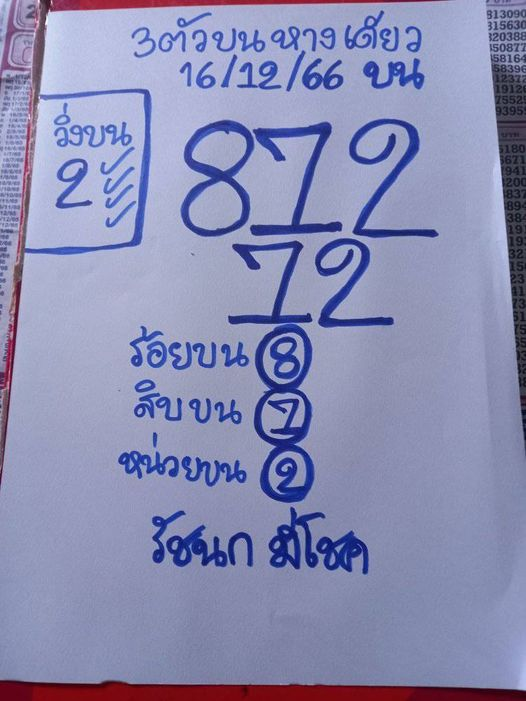 3ตัวบน หางเดียว
16/12/66 บน
วิ่งบน
2
812
12
ร้อยบน 8
สิบบน 1
หน่วยบน 2
รัชนก มีโชค